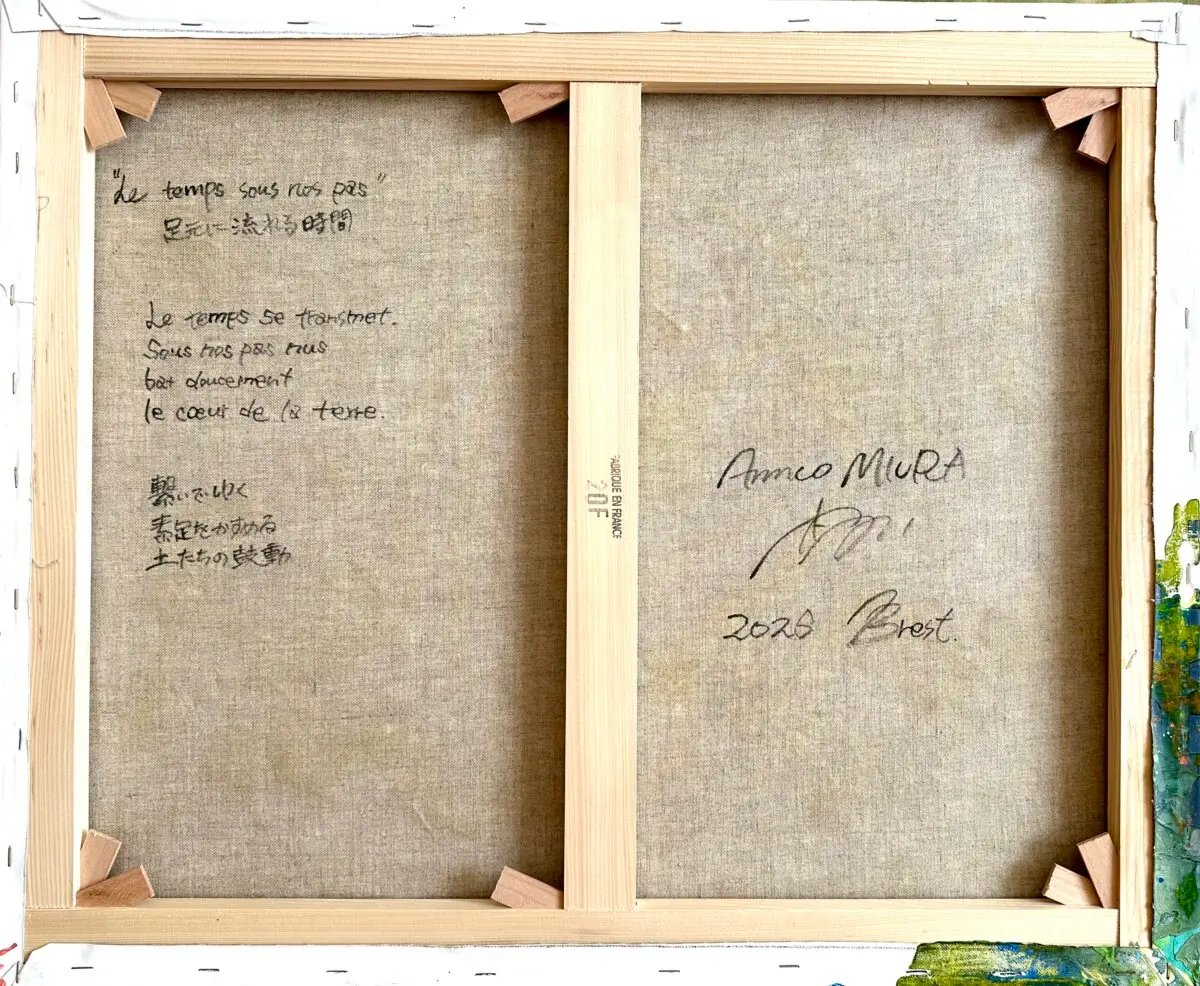 "Le temps sous nos pas"
足元に流れる時間
Le temps se transmet.
Sous nos pas nus
bat doucement
le cœur de la terre.
繋いでゆく
素足をかすめる
土たちの鼓動
FABRIQUE EN FRANCE
20F
MIURA
Brest.